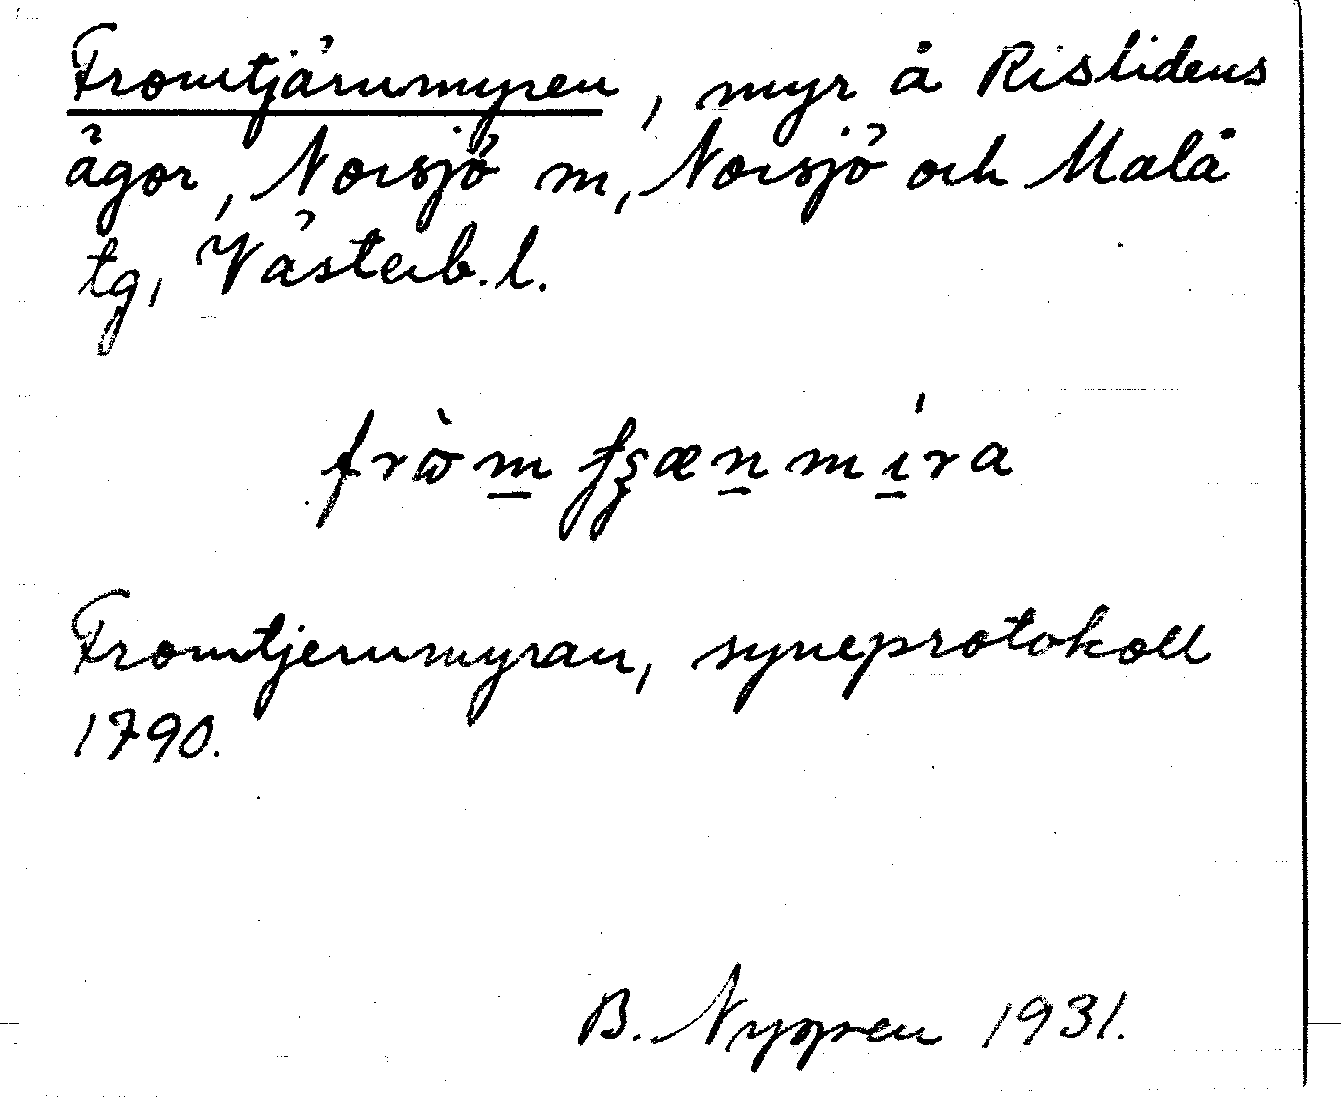 Fromtjärnmyren, myr å Rislidens
ägor, Norsjö m, Norsjö och Malå
tg, Västerb. l.
Fromtjernmyran, syneprotokoll
1790.
B. Nygren 1931.